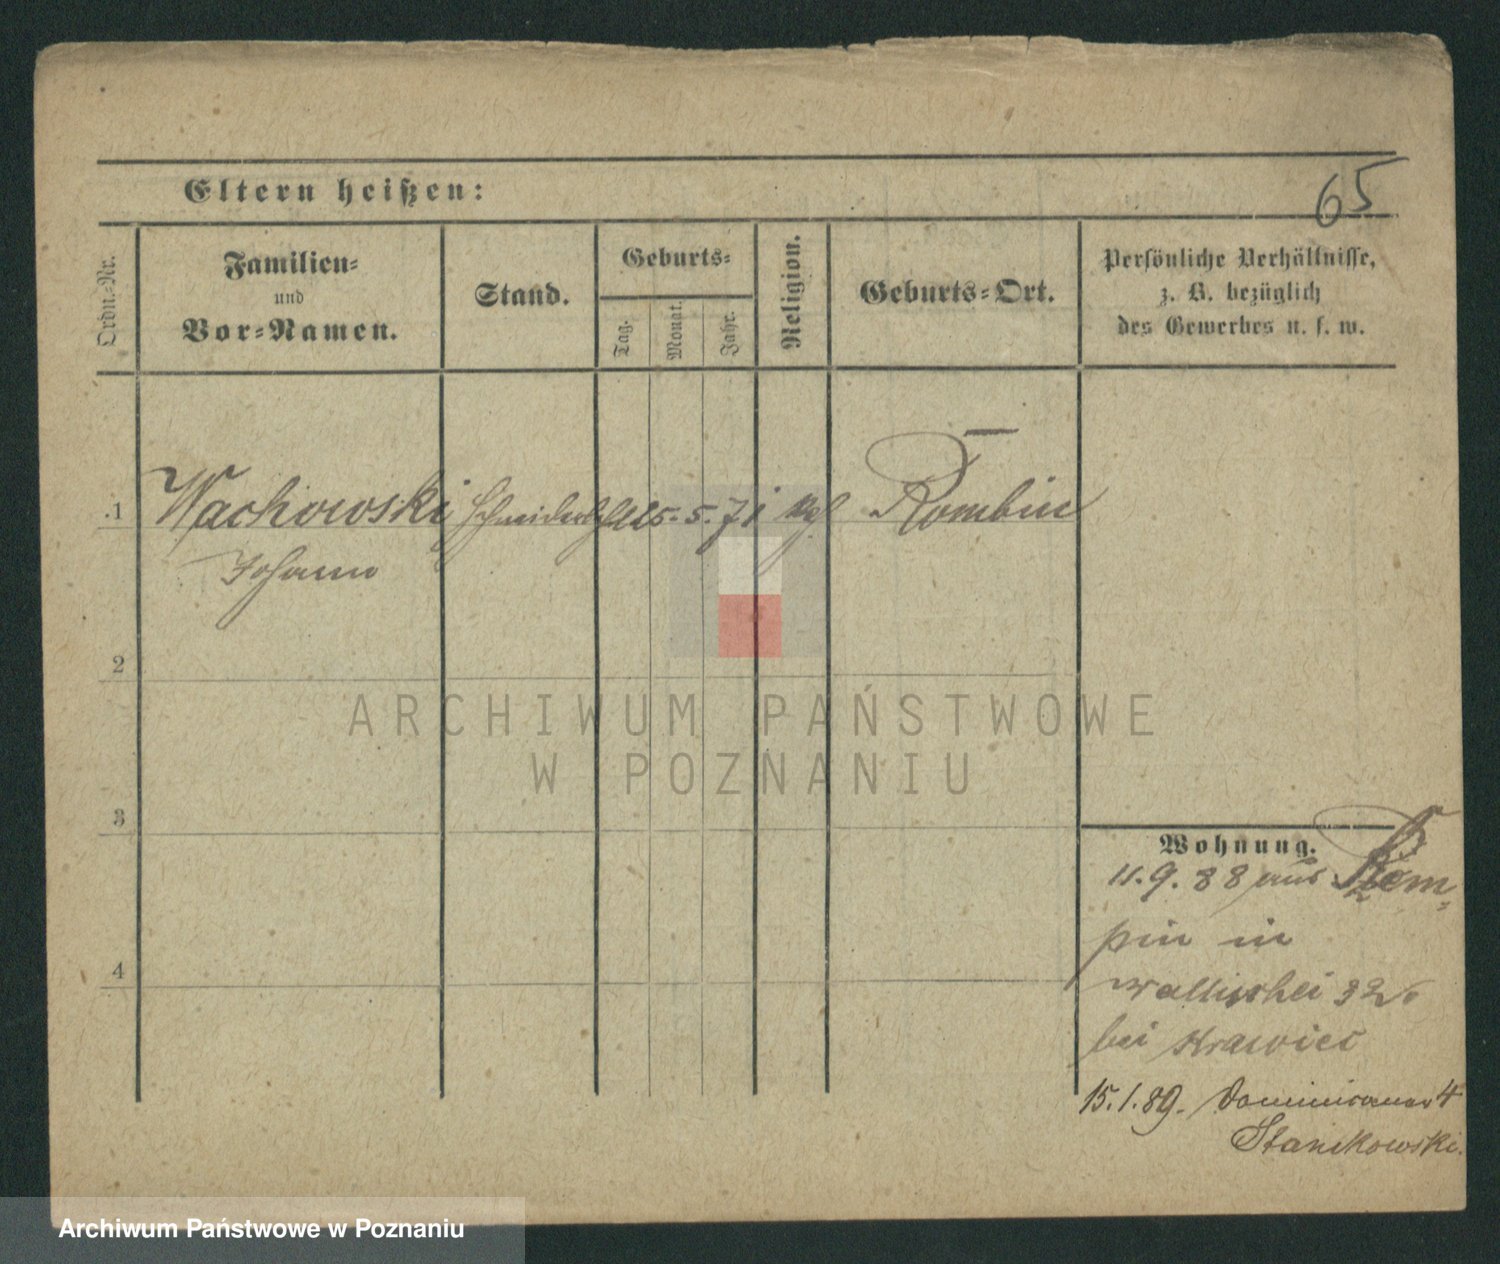 65
Eltern heißen:
Ordn.-Nr.
Familien-
und
Vor-Namen.
Stand.
Geburts-
Tag.
Monat.
Jahr.
Religion.
Geburts-Ort.
Persönliche Verhältnisse,
z. B. bezüglich
des Gewerbes u. s. w.
1 Wachowski 25. 5. 71 Rombin
Johann
2
3
4
Wohnung.
11.9.88 aus Rom-
pin in
Wallischei 32
bei Krawiec
15.1.89. Dominicaner 4
Stanikowski.
ARCHIWUM PAŃSTWOWE
W POZNANIU
Archiwum Państwowe w Poznaniu